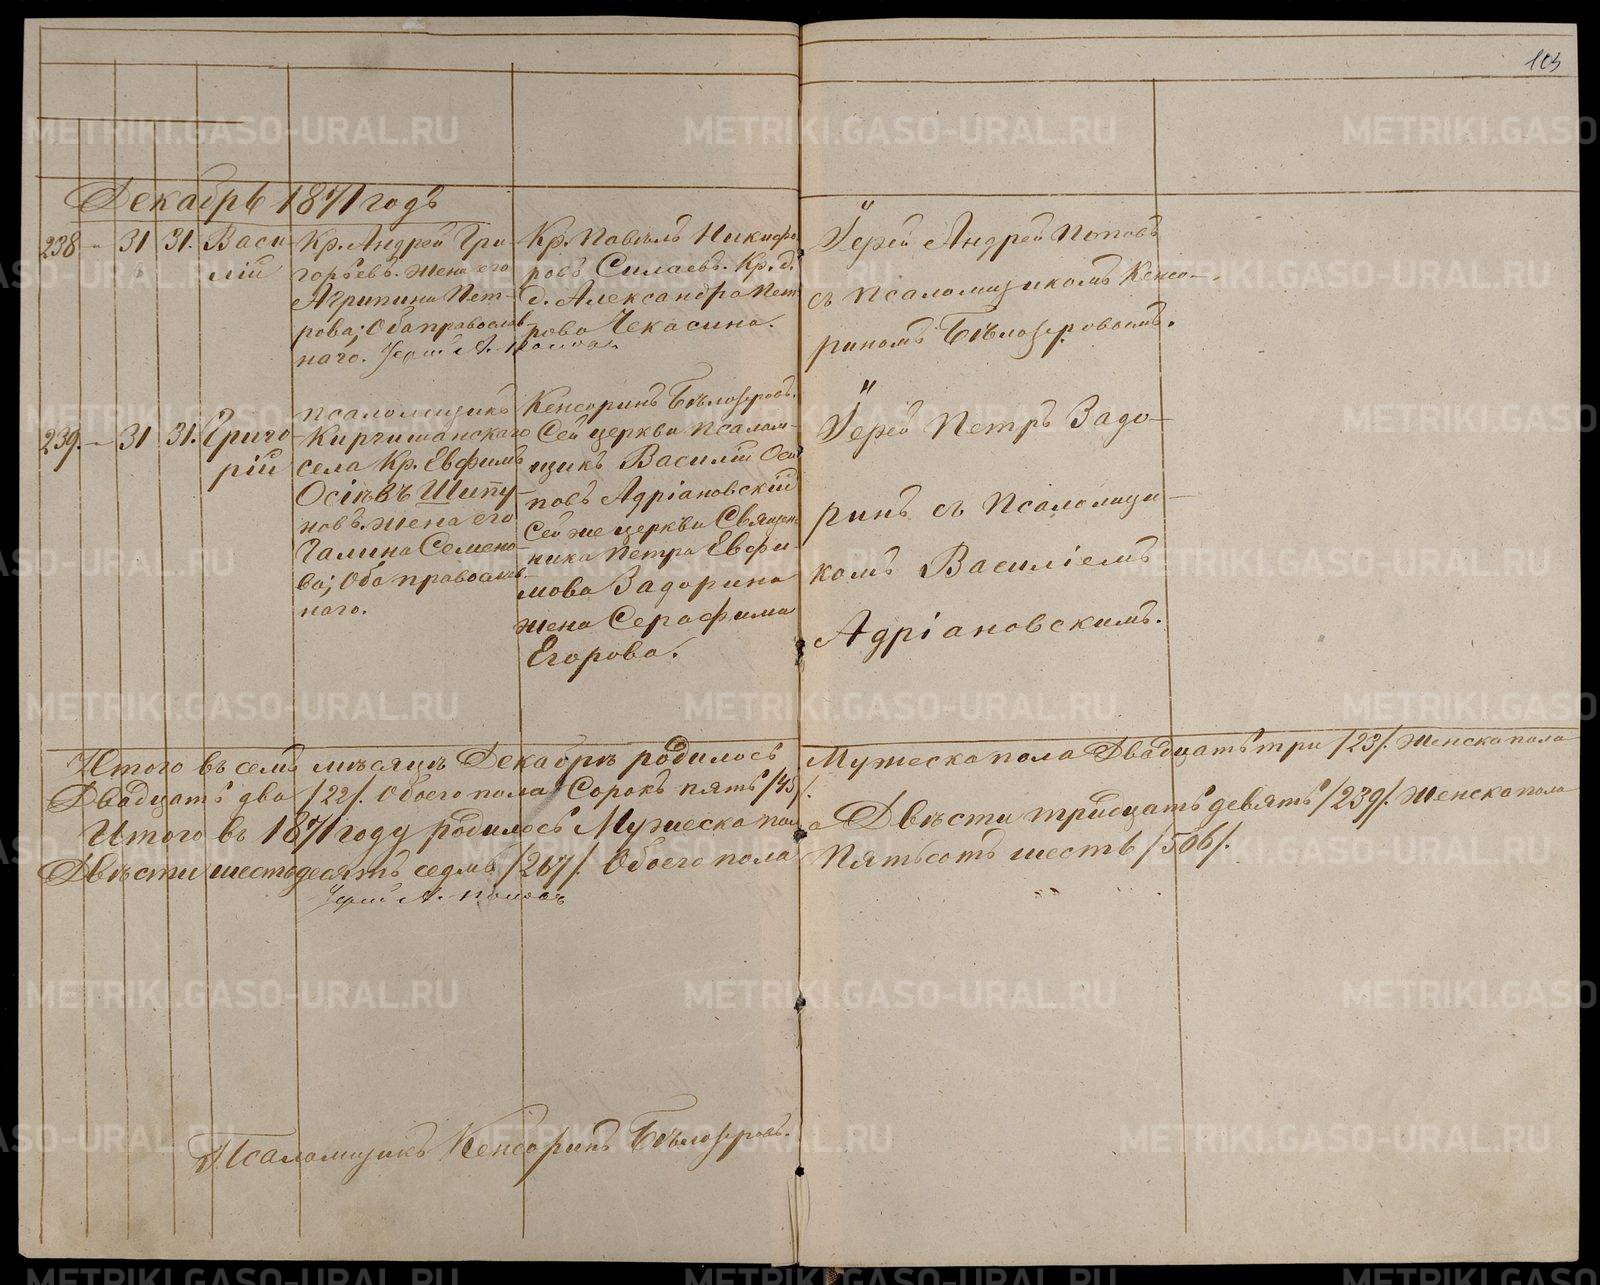 103
Декабрь 1871 годъ
238 - 31 31. Васи-
лій
Кр. Андрей Гри-
горьевъ. жена его
Агрипина Пет-
рова; Оба православ-
наго. Іерей А. Поповъ
Кр. Павелъ Никифо
ровъ Силаевъ. Кр. д.
д. Александра Пет
рова Чекасина.
Іерей Андрей Поповъ
съ псаломщикомъ Кенсо-
риномъ Бѣлозеровымъ.
239. - 31 31. Григо
рій
псаломщикъ
Киргишанскаго
села Кр. Евфимъ
Осіѣвъ Шипу-
новъ. жена его
Галина Семено-
ва; Оба православ-
наго.
Кенсоринъ Бѣлозеровъ.
Сей церкви псалом-
щикъ Василій Оси
повъ Адріановскій
Сей же церкви Священ
ника Петра Евфи-
мова Задорина
жена Серафима
Егорова.
Іерей Петръ Задо-
ринъ съ Псаломщи-
комъ Василіемъ
Адріановскимъ.
Итого въ семъ мѣсяцѣ Декабрѣ родилось Мужеска пола Двадцать три /23/. Женска пола
Двадцать два /22/. Обоего пола Сорокъ пять /45/.
Итого въ 1871 году родилось Мужеска пола Двѣсти тридцать девять /239/. Женска пола
Двѣсти шестьдесятъ седмь /267/. Обоего пола Пятьсотъ шесть /506/.
Іерей А. Поповъ
Псаломщикъ Кенсоринъ Бѣлозеровъ.
METRIKI.GASO-URAL.RU